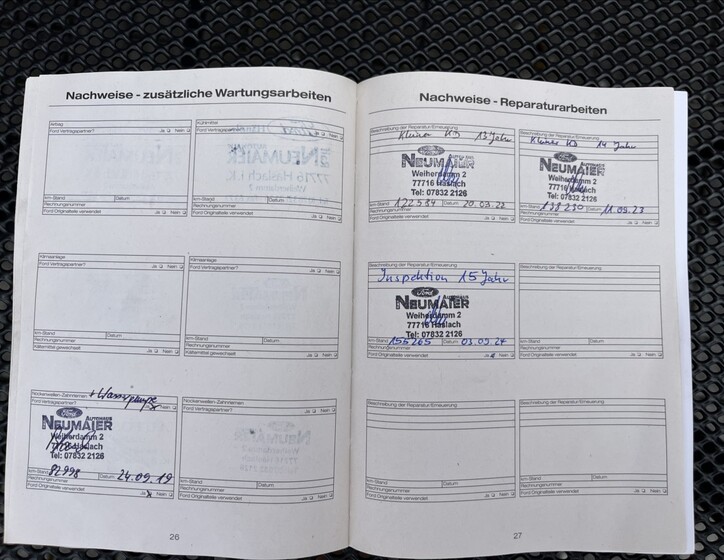 Nachweise - zusätzliche Wartungsarbeiten
Antrieb
Ford Vertragspartner? Ja Nein
km-Stand Datum
Rechnungsnummer
Ford Originalteile verwendet Ja Nein
Kühlmittel
Ford Vertragspartner? Ja Nein
km-Stand Datum
Rechnungsnummer
Ford Originalteile verwendet Ja Nein
Klimaanlage
Ford Vertragspartner? Ja Nein
km-Stand Datum
Rechnungsnummer
Kältemittel gewechselt Ja Nein
Klimaanlage
Ford Vertragspartner? Ja Nein
km-Stand Datum
Rechnungsnummer
Kältemittel gewechselt Ja Nein
Nockenwellen-Zahnriemen + Wasserpumpe
Ford Vertragspartner? Ja Nein
Ford
AUTOHAUS
NEUMAIER
Weiherdamm 2
77716 Haslach
Tel: 07832 2126
km-Stand 82998 Datum 24.09.19
Rechnungsnummer
Ford Originalteile verwendet Ja Nein
Nockenwellen-Zahnriemen
Ford Vertragspartner? Ja Nein
km-Stand Datum
Rechnungsnummer
Ford Originalteile verwendet Ja Nein
26
Nachweise - Reparaturarbeiten
Beschreibung der Reparatur/Erneuerung
Kleiner KD 13 Jahr
Ford
AUTOHAUS
NEUMAIER
Weiherdamm 2
77716 Haslach
Tel: 07832 2126
km-Stand 122584 Datum
Rechnungsnummer
Ford Originalteile verwendet Ja Nein
Beschreibung der Reparatur/Erneuerung
KD 14 Jahr
Ford
AUTOHAUS
NEUMAIER
Weiherdamm 2
77716 Haslach
Tel: 07832 2126
km-Stand 138230 Datum 11.09.23
Rechnungsnummer
Ford Originalteile verwendet Ja Nein
Beschreibung der Reparatur/Erneuerung
Inspektion 15 Jahr
Ford
AUTOHAUS
NEUMAIER
Weiherdamm 2
77716 Haslach
Tel: 07832 2126
km-Stand 155265 Datum 03.09.24
Rechnungsnummer
Ford Originalteile verwendet Ja Nein
Beschreibung der Reparatur/Erneuerung
km-Stand Datum
Rechnungsnummer
Ford Originalteile verwendet Ja Nein
Beschreibung der Reparatur/Erneuerung
km-Stand Datum
Rechnungsnummer
Ford Originalteile verwendet Ja Nein
Beschreibung der Reparatur/Erneuerung
km-Stand Datum
Rechnungsnummer
Ford Originalteile verwendet Ja Nein
27